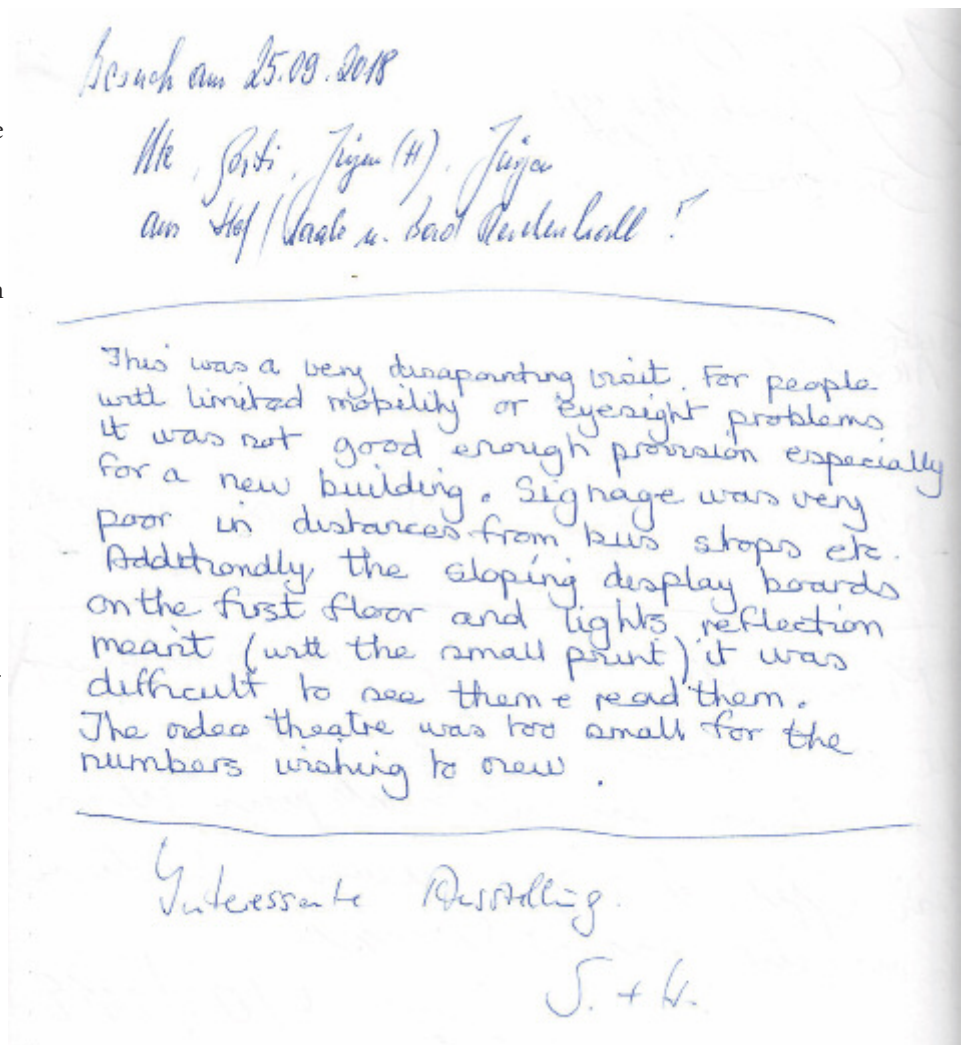 Besuch am 25.09.2018
Ute, Gosti, Jürgen (H), Jürgen
aus Hof/Saale u. Bad Reichenhall!
This was a very disapointing visit. For people
with limited mobility or eyesight problems
it was not good enough provision especially
for a new building. Signage was very
poor in distances from bus stops etc.
Additionally, the sloping display boards
on the first floor and lights reflection
meant (with the small print) it was
difficult to see them & read them.
The video theatre was too small for the
numbers wishing to view.
Interessante Ausstellung.
S. + W.